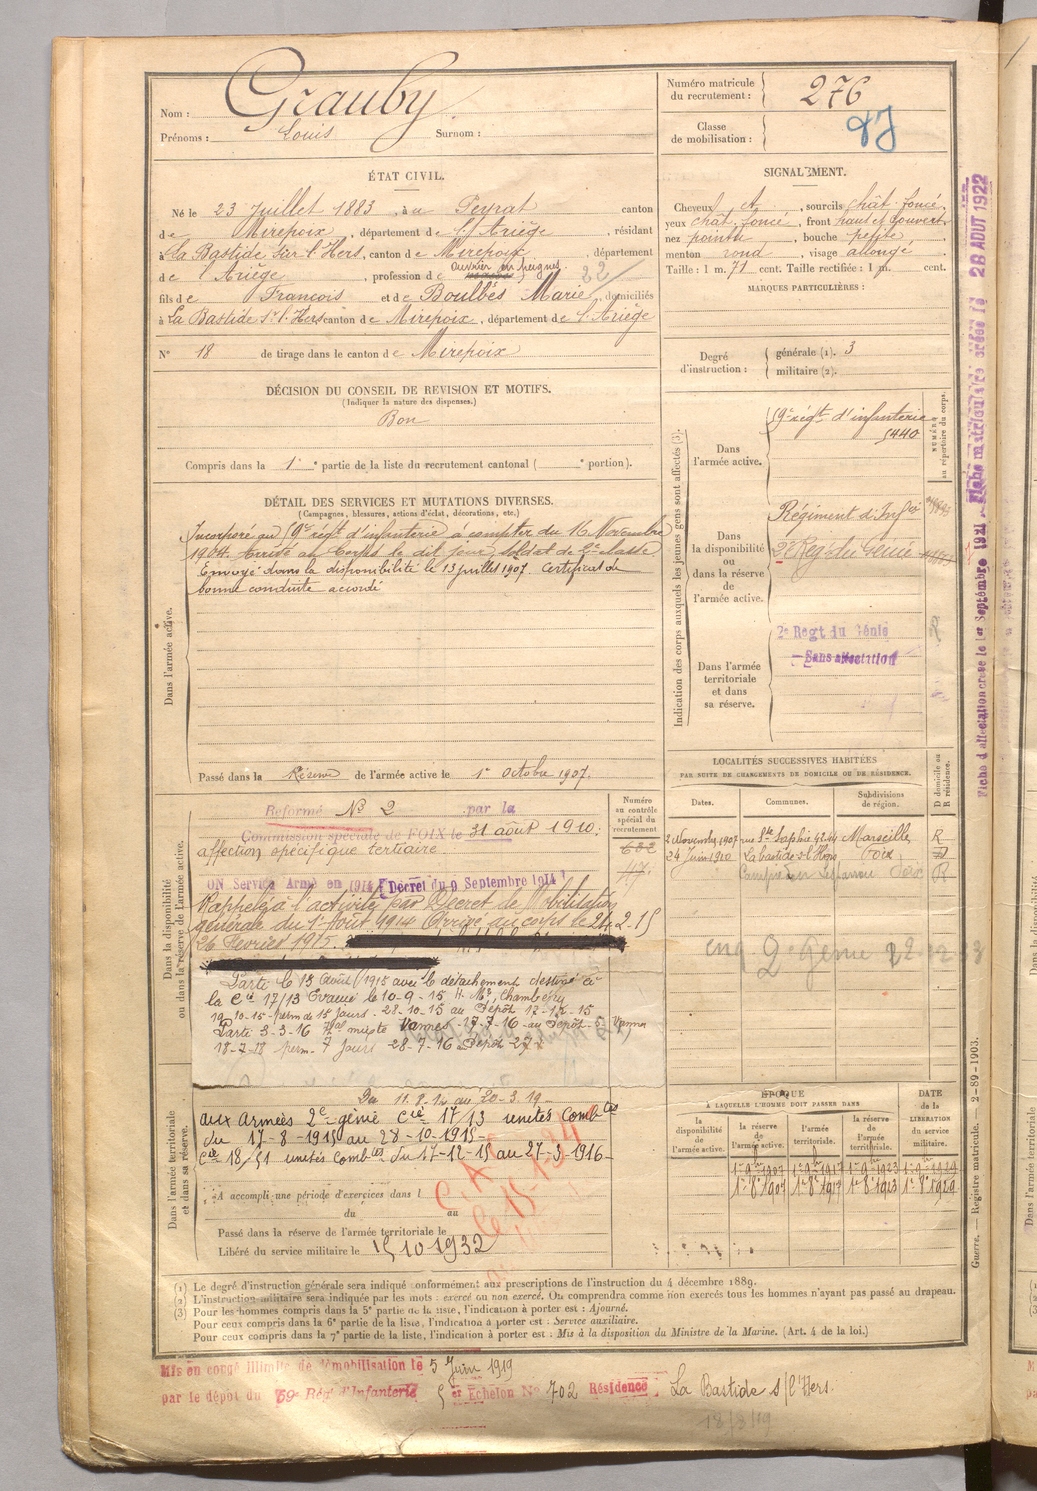 Nom : Grauby
Prénoms : Louis Surnom :
Numéro matricule du recrutement : 276
Classe de mobilisation :
ÉTAT CIVIL.
Né le 23 Juillet 1883, à Peyrat canton
de Mirepoix, département de l'Ariège, résidant
à La Bastide sur l'Hers, canton de Mirepoix, département
de l'Ariège, profession de ouvrier en peignes 22
fils de François et de Boulbès Marie, domiciliés
à La Bastide s. l'Hers canton de Mirepoix, département de l'Ariège
N° 18 de tirage dans le canton de Mirepoix
SIGNALEMENT.
Cheveux, sourcils chât. foncé
yeux chât. foncé, front haut et couvert
nez pointu, bouche petite
menton rond, visage allongé
Taille : 1 m. 71 cent. Taille rectifiée : 1 m. cent.
MARQUES PARTICULIÈRES :
Degré d'instruction :
générale (1). 3
militaire (2).
DÉCISION DU CONSEIL DE REVISION ET MOTIFS.
(Indiquer la nature des dispenses.)
Bon
Compris dans la 1e partie de la liste du recrutement cantonal ( e portion).
DÉTAIL DES SERVICES ET MUTATIONS DIVERSES.
(Campagnes, blessures, actions d'éclat, décorations, etc.)
Dans l'armée active.
Incorporé au régt d'infanterie à compter du 16 Novembre
1904. Arrivé au Corps le dit jour, soldat de 2e classe
Envoyé dans la disponibilité le 13 juillet 1907. Certificat de
bonne conduite accordé
Passé dans la Réserve de l'armée active le 1er Octobre 1907.
Indication des corps auxquels les jeunes gens sont affectés (3).
NUMÉRO au répertoire du corps.
Dans l'armée active.
régt d'infanterie
5440
Dans la disponibilité ou dans la réserve de l'armée active.
Régiment d'Inf
2e Régt du Génie
Dans l'armée territoriale et dans sa réserve.
2e Regt du Génie
Sans affectation
Dans la disponibilité ou dans la réserve de l'armée active.
Réformé N° 2 par la
Commission spéciale de FOIX le 31 août 1910:
affection spécifique tertiaire.
Service Armé en 1914 (Décret du 9 Septembre 1914)
Rappelé à l'activité par Décret de Mobilisation
générale du 1er Août 1914 Arrivé au corps le 24.2.15
26 Février 1915.
Parti le 13 Août 1915 avec le détachement destiné à
la Cie 17/13 Evacué le 10-9-15 H. Mre Chambéry
19-10-15 - perm de 15 jours - 28-10-15 au Dépôt 17-12-15
Parti 3-3-16 Hal mixte Vannes 17-7-16 - au Dépôt
18-7-18 perm. 7 jours 28-7-16 Dépôt
Numéro au contrôle spécial du recrutement
LOCALITÉS SUCCESSIVES HABITÉES
PAR SUITE DE CHANGEMENTS DE DOMICILE OU DE RÉSIDENCE.
Dates. Communes. Subdivisions de région. D domicile ou R résidence.
2 Novembre 1907 rue Ste Sophie Marseille R
24 Juin 1910 La bastide s l'Hers Foix
Foix R
Dans l'armée territoriale et dans sa réserve.
Du 11.8.14 au 20-3-19
aux Armées 2e génie Cie 17/13 unités Combtes
du 17-8-1915 au 28-10-1915-
Cie 18/51 unités Combtes du 17-12-15 au 27-3-1916-
A accompli une période d'exercices dans l
du au
Passé dans la réserve de l'armée territoriale le
Libéré du service militaire le 15 10 1932
ÉPOQUE
À LAQUELLE L'HOMME DOIT PASSER DANS
la disponibilité de l'armée active.
la réserve de l'armée active.
l'armée territoriale.
la réserve de l'armée territoriale.
DATE de la LIBÉRATION du service militaire.
1er 8bre 1907 1er 8bre 1917 1er 8bre 1923 1er 8bre 1929
(1) Le degré d'instruction générale sera indiqué conformément aux prescriptions de l'instruction du 4 décembre 1889.
(2) L'instruction militaire sera indiquée par les mots : exercé ou non exercé. On comprendra comme non exercés tous les hommes n'ayant pas passé au drapeau.
(3) Pour les hommes compris dans la 5e partie de la liste, l'indication à porter est : Ajourné.
Pour ceux compris dans la 6e partie de la liste, l'indication à porter est : Service auxiliaire.
Pour ceux compris dans la 7e partie de la liste, l'indication à porter est : Mis à la disposition du Ministre de la Marine. (Art. 4 de la loi.)
Mis en congé illimité de démobilisation le 5 Juin 1919
par le dépôt du 59e Rég. d'Infanterie Echelon N° 702 Résidence : La Bastide s/l'Hers.
18/8/19
Guerre. — Registre matricule. — 2-89-1903.
Fiche d'affectation créée le 1er Septembre 1921 - Fiche matriculaire créée le 28 AOUT 1922